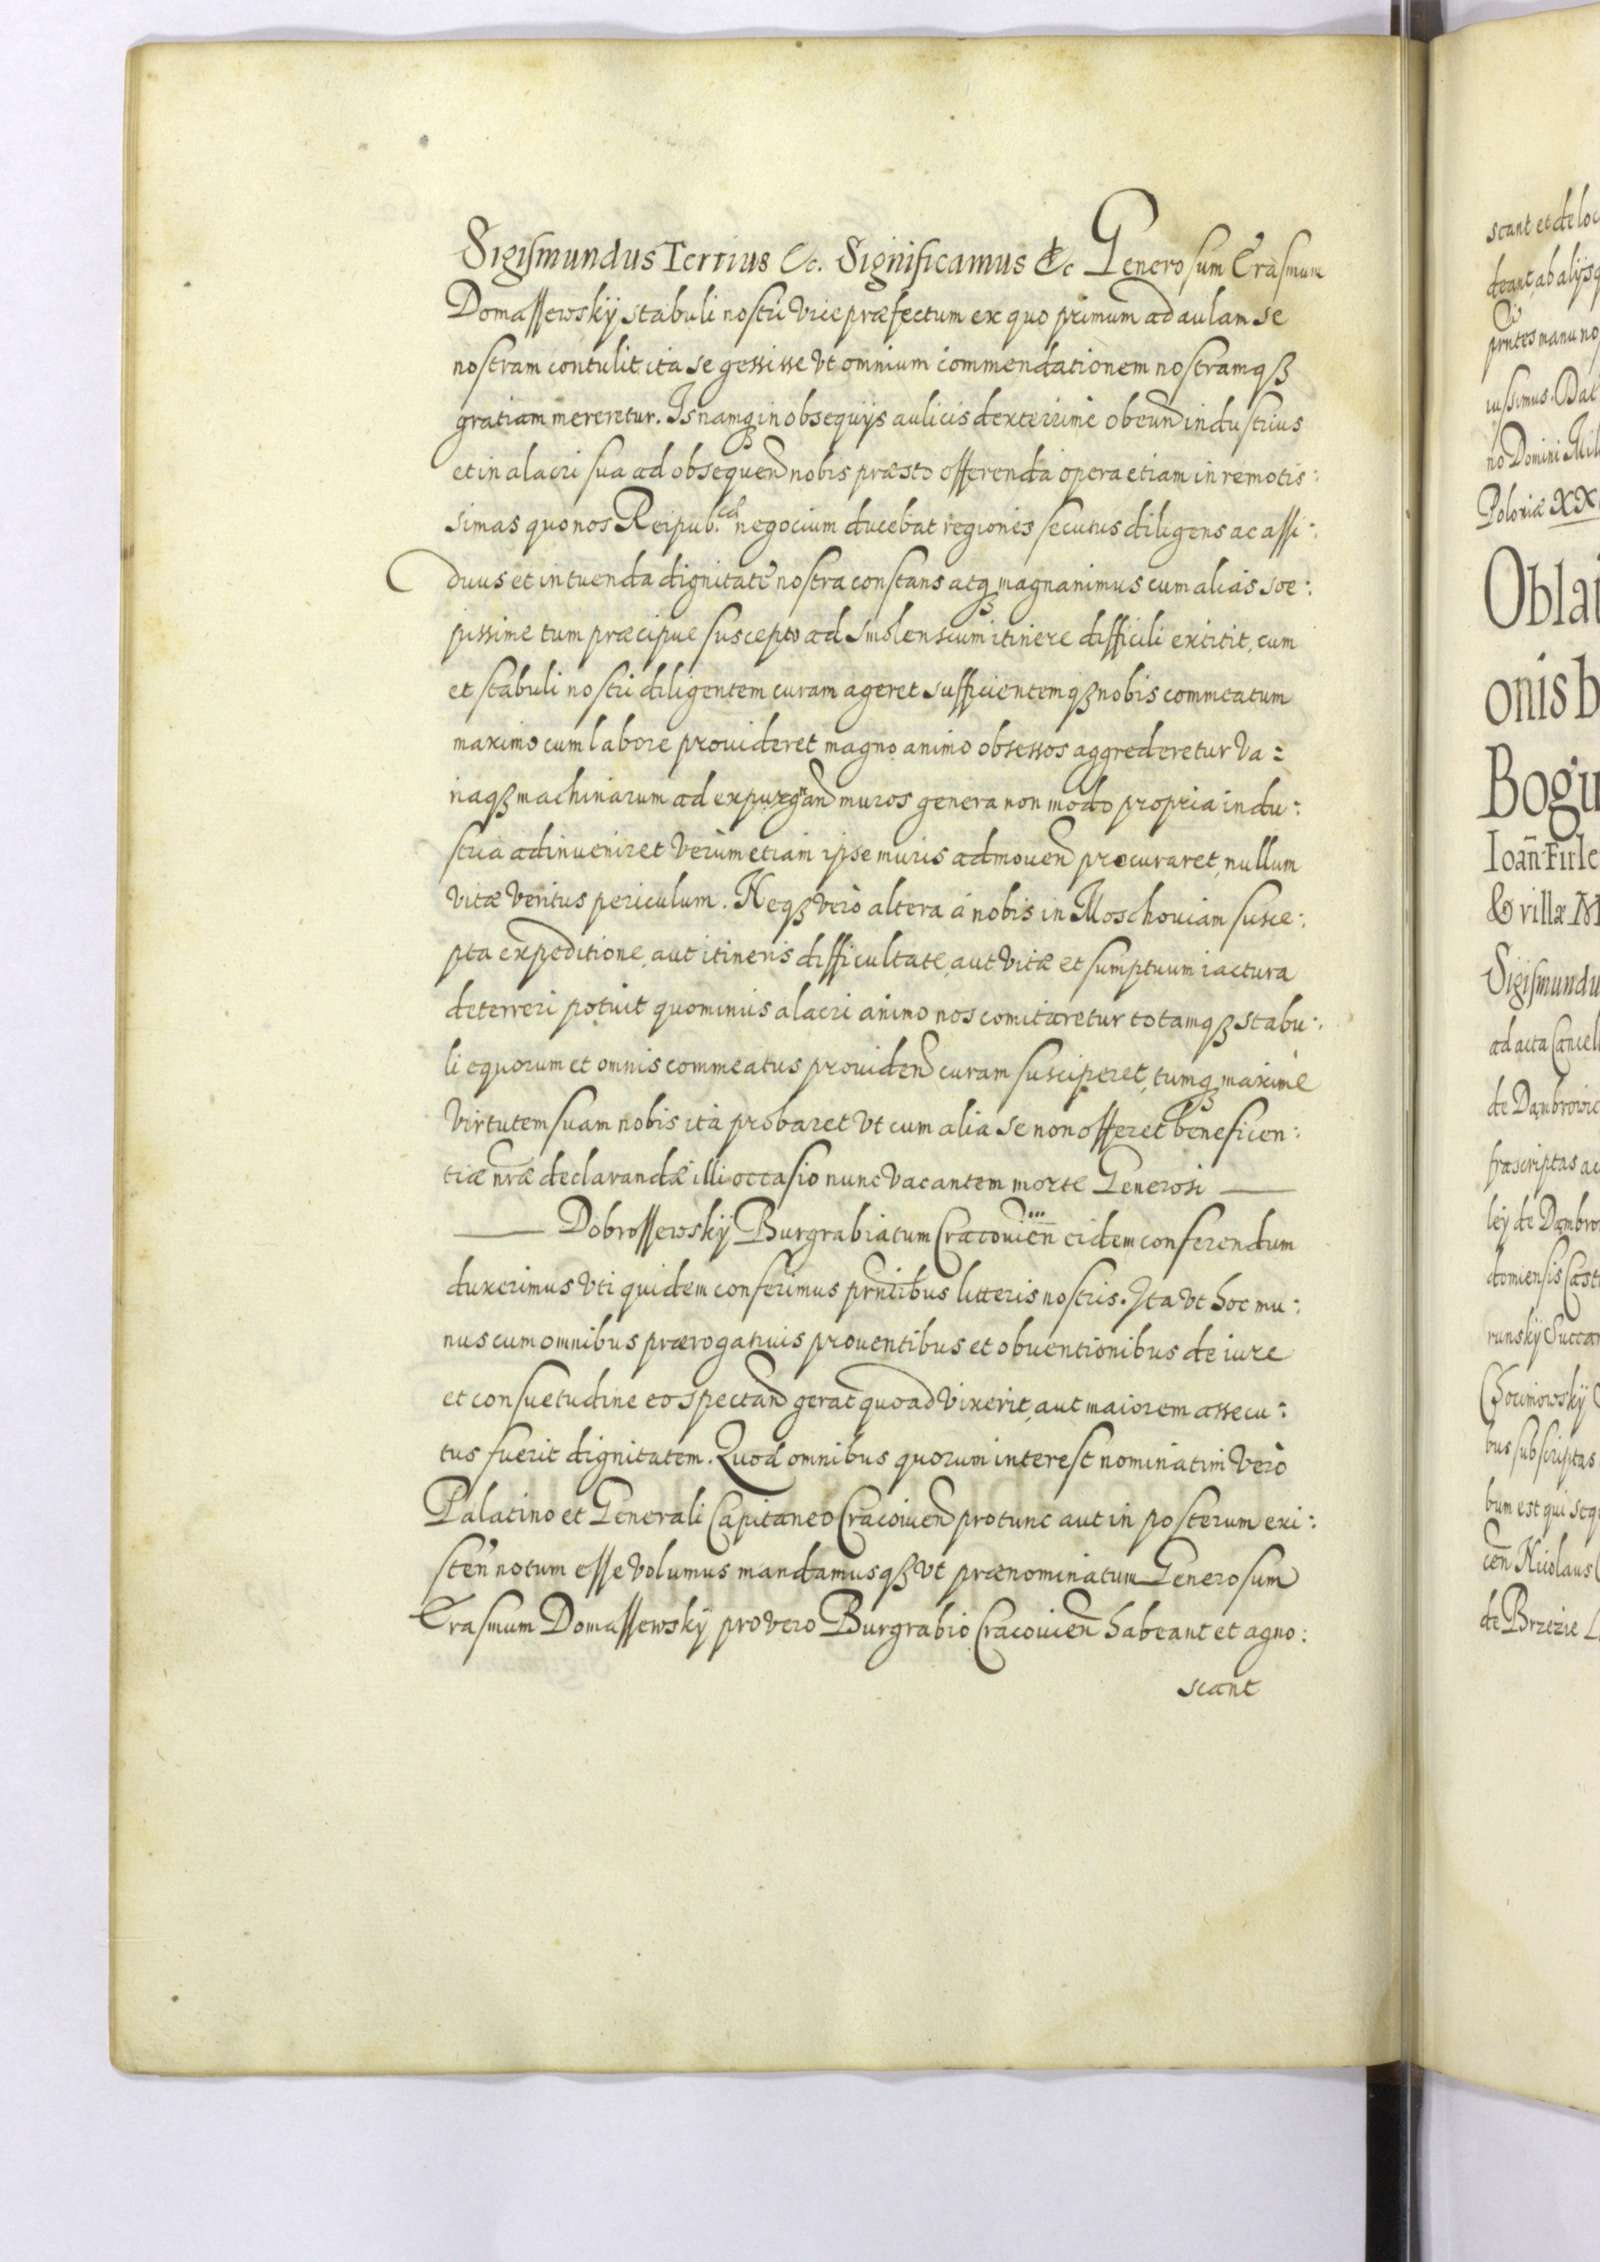 Sigismundus Tertius &c. Significamus &c Generosum Erasmum
Domassewskÿ stabuli nostri Vice præfectum ex quo primum ad aulam se
nostram contulit ita se gessisse Vt omnium commendationem nostramqȝ
gratiam mereretur. Is namqȝ in obsequijs aulicis dexterrimè obeund industrius
et in alacri sua ad obsequend nobis præsto offerenda opera etiam in remotis:
simas quo nos Reipub.cæ negocium ducebat regiones secutus diligens ac assi:
duus et in tuenda dignitate nostra constans atqȝ magnanimus cum alias sæ:
pissime tum præcipue suscepto ad Smolenscum itinere difficili extitit, cum
et stabuli nostri diligentem curam ageret sufficientemqȝ nobis commeatum
maximo cum labore prouideret magno animo obsessos aggrederetur Va:
riaqȝ machinarum ad expurgnand muros genera non modo propria indu:
stria adinueniret Verùm etiam ipse muris admouend procuraret, nullum
Vitæ Veritus periculum. Neqȝ Verò altera à nobis in Moschouiam susce:
pta expeditione, aut itineris difficultate, aut Vitæ et sumptuum iactura
deterreri potuit quominus alacri animo nos comitaretur totamqȝ stabu:
li equorum et omnis commeatus prouidend curam susciperet, tumqȝ maximè
Virtutem suam nobis ita probaret Vt cum alia se non offeret beneficen:
tiæ nræ declarandæ illi occasio nunc Vacantem morte Generosi —
— Dobrossewskÿ Burgrabiatum Cracouien eidem conferendum
duxerimus Vti quidem conferimus prntibus litteris nostris. Ita Vt hoc mu:
nus cum omnibus prærogatiuis prouentibus et obuentionibus de iure
et consuetudine eo spectand gerat quoad Vixerit, aut maiorem assecu:
tus fuerit dignitatem. Quod omnibus quorum interest nominatim Verò
Palatino et Generali Capitaneo Cracouien pro tunc aut in posterum exi:
sten notum esse Volumus mandamusqȝ Vt prænominatum Generosum
Erasmum Domassewskÿ pro Vero Burgrabio Cracouien habeant et agno:
scant
scant et de loc
deant, ab alijsq
prntes manu no
iussimus. Dat
no Domini Mil
Poloniæ XX
Oblat
onis b
Bogu
Ioañ Firle
& villæ M
Sigismundu
ad acta Cancell
de Dambrowic
frascriptas ac
leÿ de Dambro
domiensis Cast
runskÿ Succam
bus subscriptas
bum est qui seq
cen Nicolaus
de Brzezie L